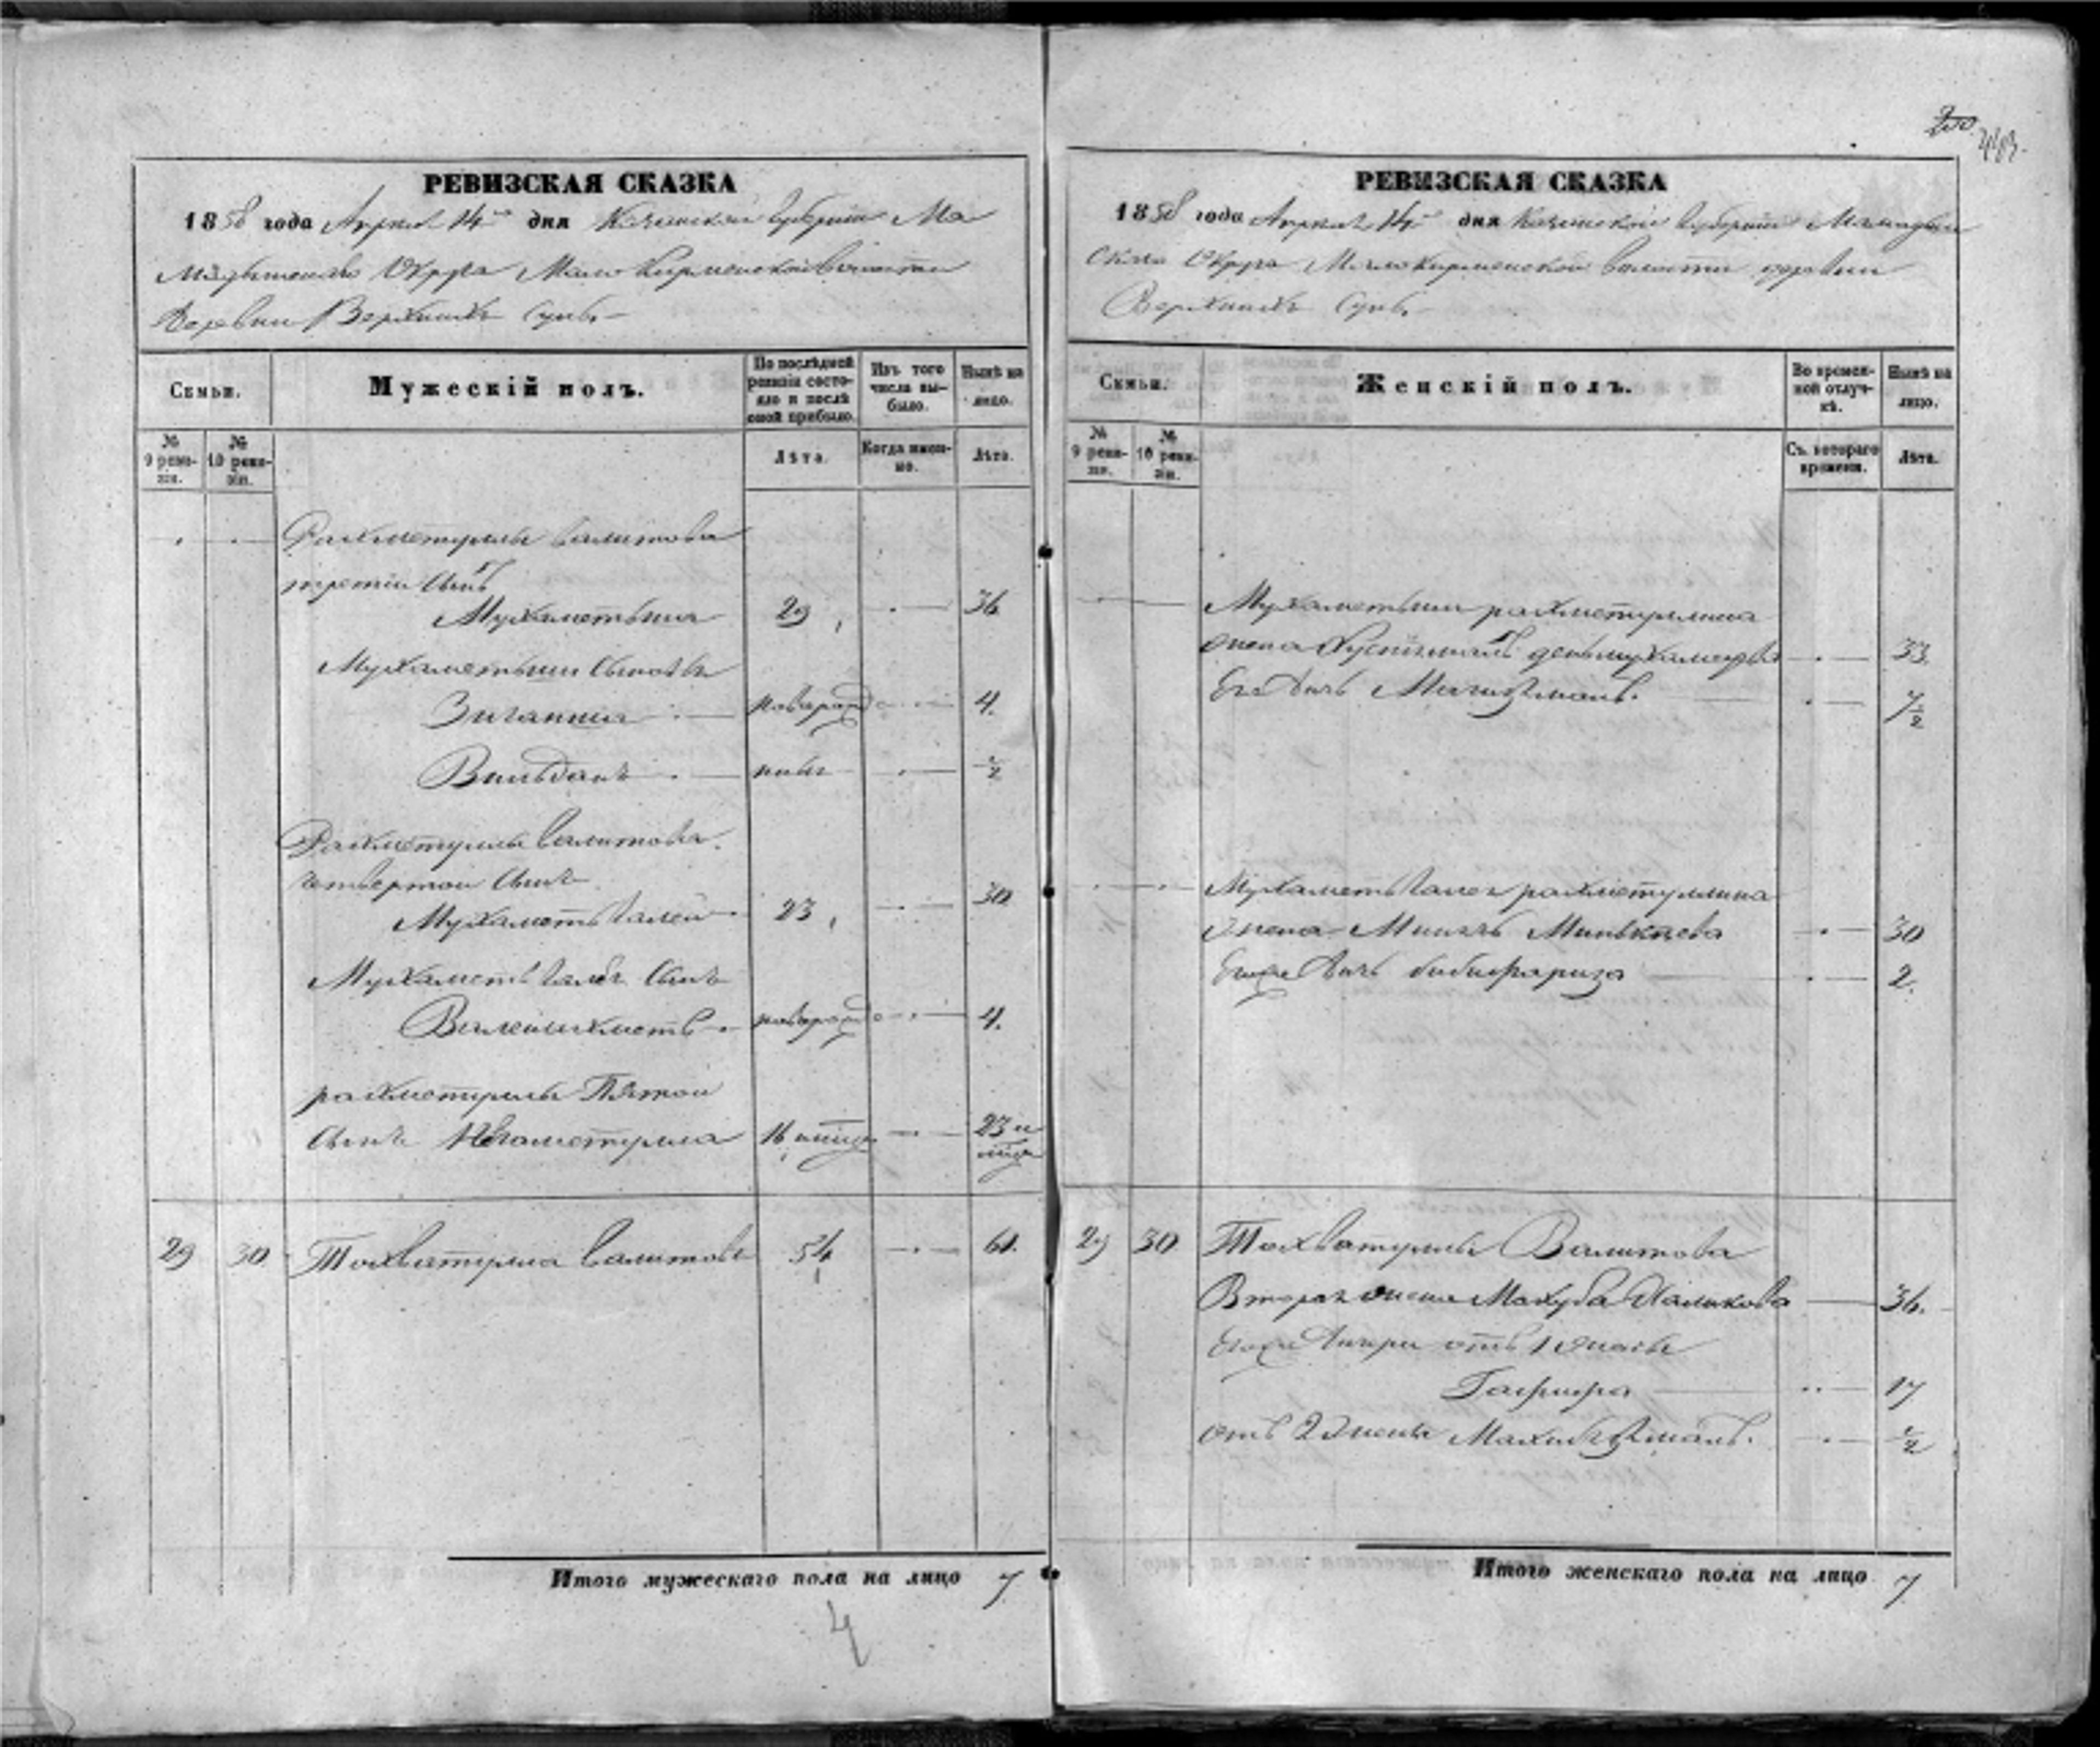 РЕВИЗСКАЯ СКАЗКА
1858 года Апреля 14го дня Казанской губернiи Ма
мадышскаго Округа Мало Кирменской волости
деревни Верхнихъ Сунь
Семьи.
Мужескiй полъ.
По послѣдней ревизiи состояло и послѣ оной прибыло.
Изъ того числа выбыло.
Нынѣ на лицо.
№ 9 ревизiи.
№ 10 ревизiи.
Лѣта.
Когда именно.
Лѣта.
Рахметуллы Валитова
третiй Сынъ
Мухаметьша 29 36
Мухаметьши Сыновья
Зиганша новорожд 4.
Вильданъ новъ ½
Рахметуллы Валитова.
четвертой Сынъ
Мухаметь Галей 23 30
Мухаметь Галея Сынъ
Валеiахметь новорожд 4.
рахметуллы Пятой
Сынъ 16 23
29 30 Тохватулла Валитовъ 54 61.
Итого мужескаго пола на лицо 7
4
200
РЕВИЗСКАЯ СКАЗКА
1858 года Апреля 14 дня Казанской губернiи Мамадыш
скаго Округа Малокирменской волости деревни
Верхнихъ Сунь
Семьи.
Женскiй полъ.
Во временной отлучкѣ.
Нынѣ на лицо.
№ 9 ревизiи.
№ 10 ревизiи.
Съ котораго времени.
Лѣта.
Мухаметьши рахметуллина
жена 33
Его дочь 7½
Мухаметь Галея рахметуллина
жена Минкаева 30
Ево же дочь бибифариза 2.
29 30 Тохватуллы Валитова
Вторая жена Махуба Халикова 36.
Ево же дочери отъ 1 жены
Гафифа 17
отъ 2 жены ½
Итого женскаго пола на лицо 7